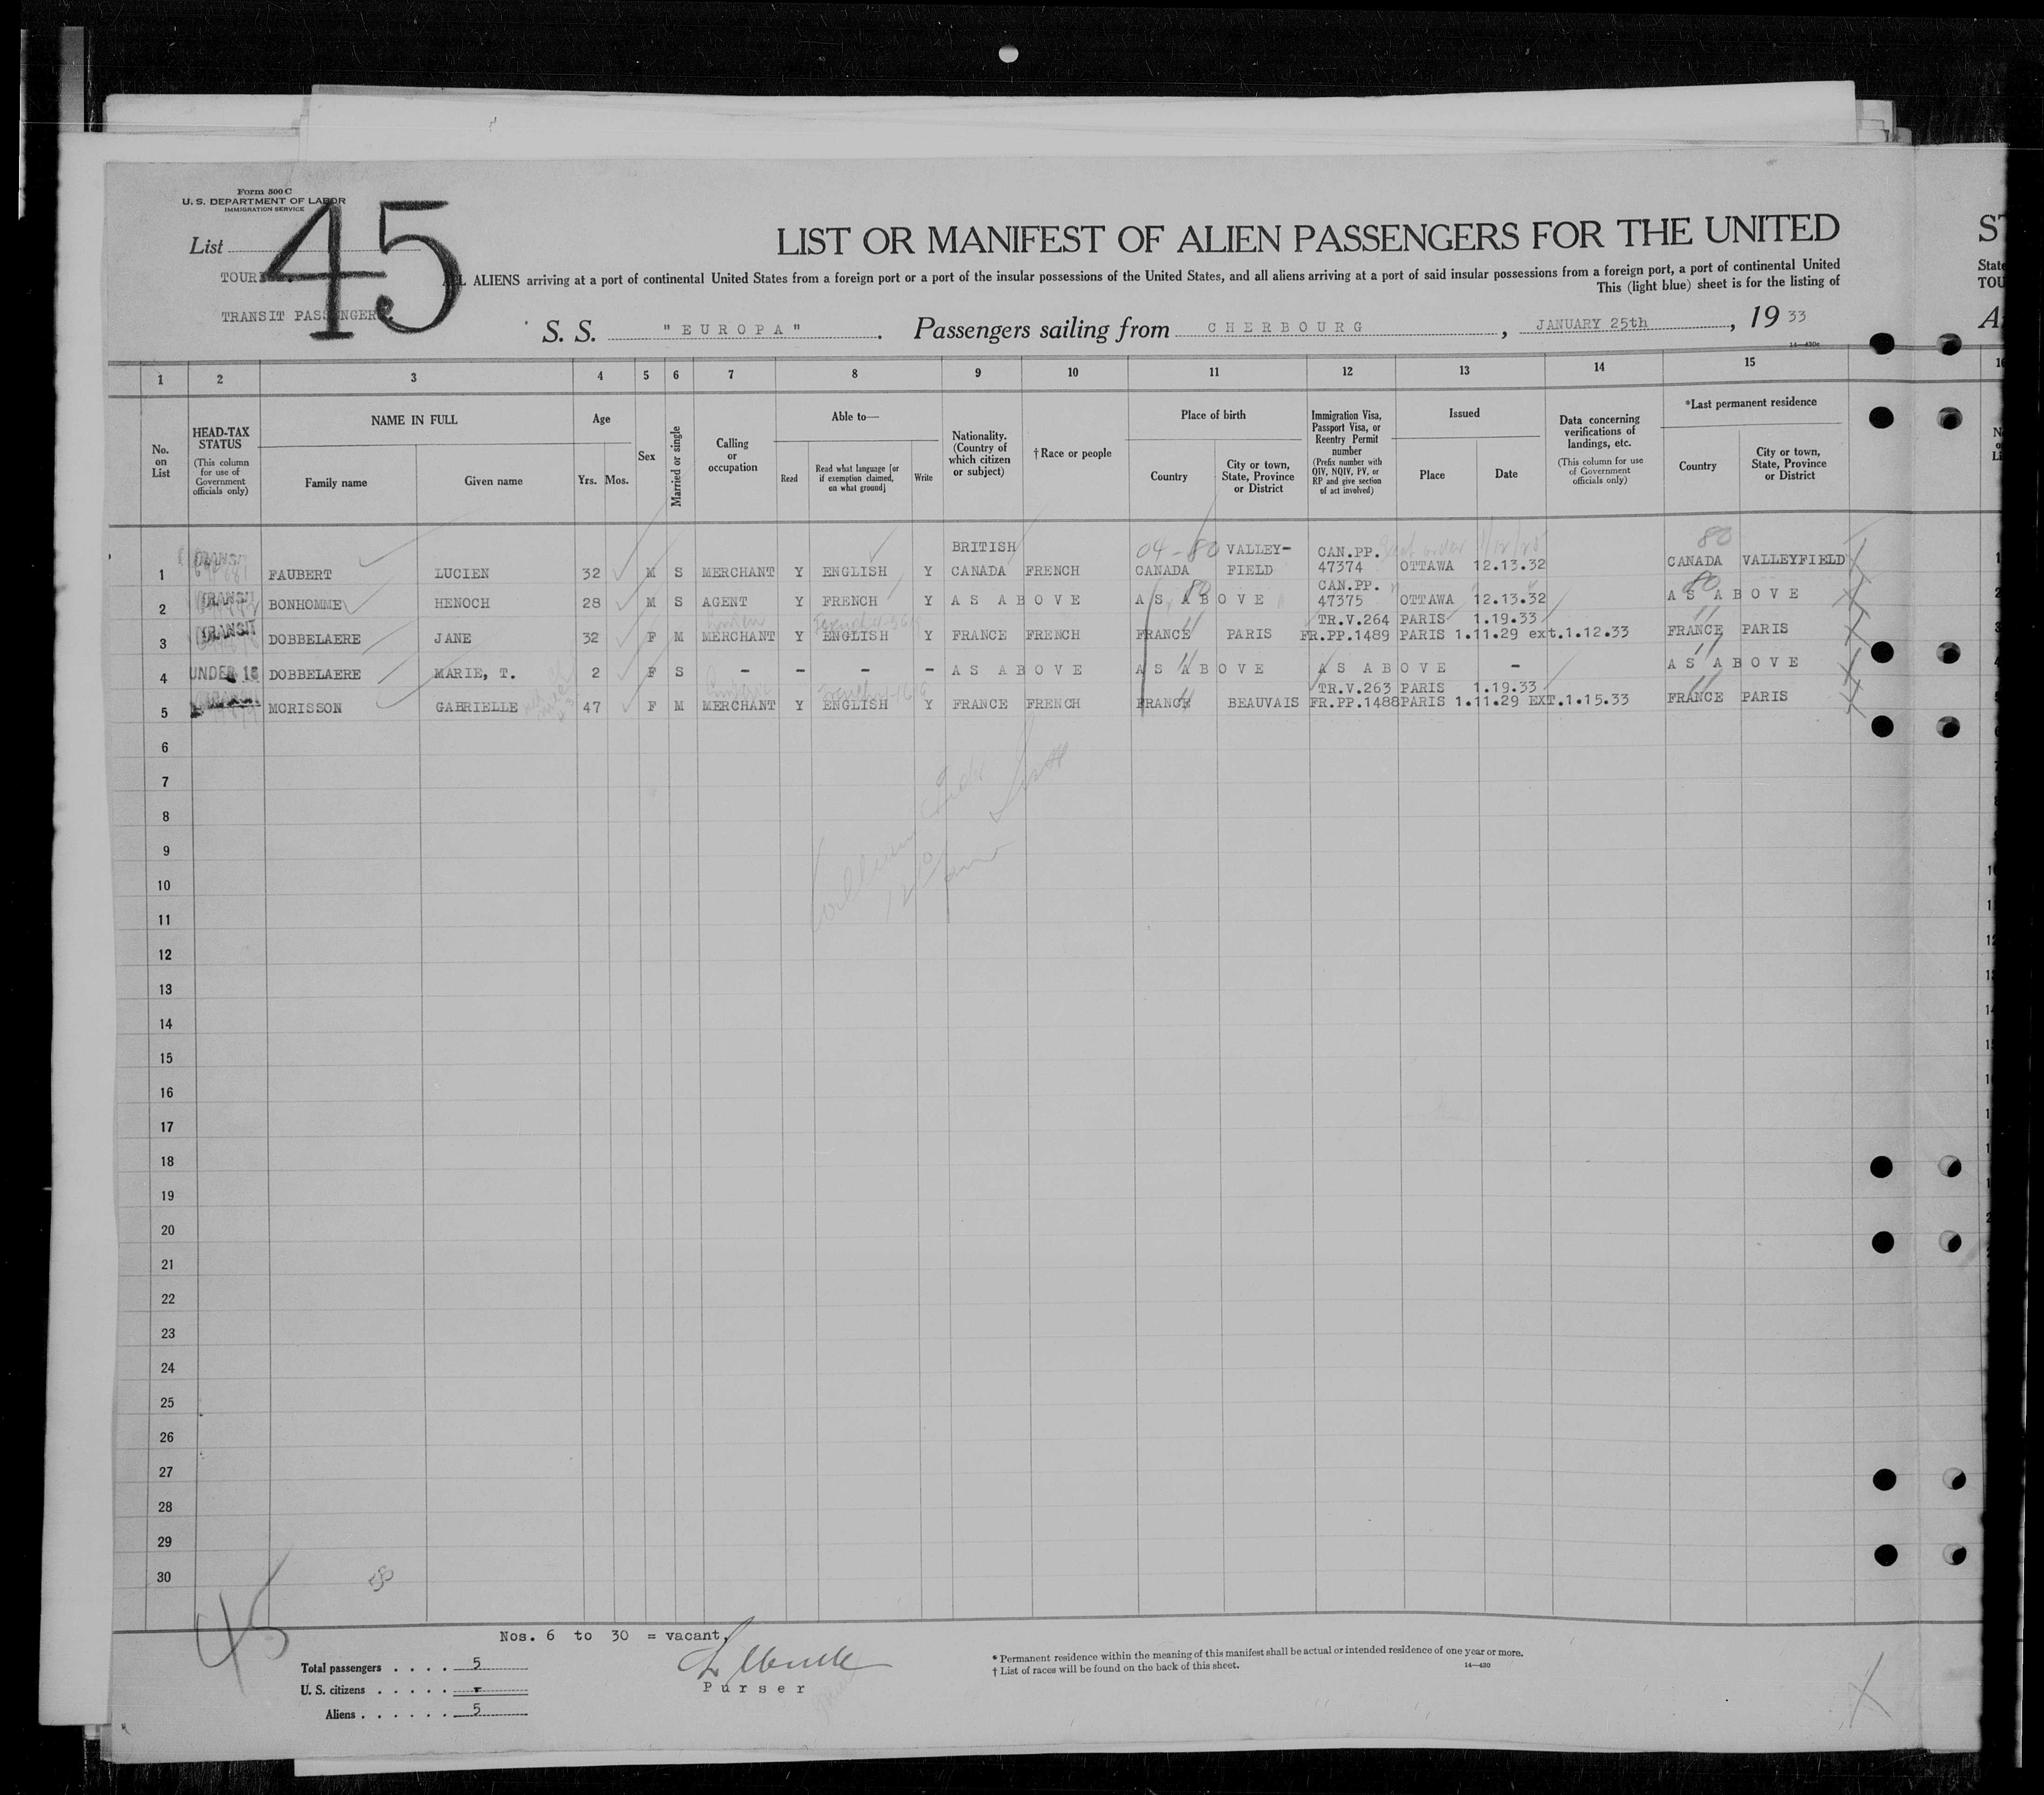 Form 500 C
U. S. DEPARTMENT OF LABOR
IMMIGRATION SERVICE
45
List
LIST OR MANIFEST OF ALIEN PASSENGERS FOR THE UNITED
ST
ALL ALIENS arriving at a port of continental United States from a foreign port or a port of the insular possessions of the United States, and all aliens arriving at a port of said insular possessions from a foreign port, a port of continental United
State
This (light blue) sheet is for the listing of
TOU
TRANSIT PASSENGERS
S. S. "EUROPA". Passengers sailing from CHERBOURG, JANUARY 25th, 19 33
14—430c
1 2 3 4 5 6 7 8 9 10 11 12 13 14 15
No. on List
HEAD-TAX STATUS
(This column for use of Government officials only)
NAME IN FULL
Family name Given name
Age
Yrs. Mos.
Sex
Married or single
Calling or occupation
Able to—
Read
Read what language [or if exemption claimed, on what ground]
Write
Nationality. (Country of which citizen or subject)
†Race or people
Place of birth
Country
City or town, State, Province or District
Immigration Visa, Passport Visa, or Reentry Permit number
(Prefix number with QIV, NQIV, PV, or RP and give section of act involved)
Issued
Place Date
Data concerning verifications of landings, etc.
(This column for use of Government officials only)
*Last permanent residence
Country
City or town, State, Province or District
1 TRANSIT FAUBERT LUCIEN 32 M S MERCHANT Y ENGLISH Y BRITISH CANADA FRENCH 04-80 CANADA VALLEY-FIELD CAN.PP. 47374 OTTAWA 12.13.32 80 CANADA VALLEYFIELD
2 TRANSIT BONHOMME HENOCH 28 M S AGENT Y FRENCH Y AS ABOVE 80 AS ABOVE CAN.PP. 47375 OTTAWA 12.13.32 80 AS ABOVE
3 TRANSIT DOBBELAERE JANE 32 F M MERCHANT Y ENGLISH Y FRANCE FRENCH 11 FRANCE PARIS TR.V.264 PARIS 1.19.33 FR.PP.1489 PARIS 1.11.29 ext.1.12.33 11 FRANCE PARIS
4 UNDER 16 DOBBELAERE MARIE, T. 2 F S - - - - AS ABOVE 11 AS ABOVE AS ABOVE - 11 AS ABOVE
5 TRANSIT MORISSON GABRIELLE 47 F M MERCHANT Y ENGLISH Y FRANCE FRENCH 11 FRANCE BEAUVAIS TR.V.263 PARIS 1.19.33 FR.PP.1488 PARIS 1.11.29 EXT.1.15.33 11 FRANCE PARIS
6
7
8
9
10
11
12
13
14
15
16
17
18
19
20
21
22
23
24
25
26
27
28
29
30
45
Nos. 6 to 30 = vacant,
Total passengers . . . . 5
U. S. citizens . . . . . -
Aliens . . . . . . 5
Purser
* Permanent residence within the meaning of this manifest shall be actual or intended residence of one year or more.
† List of races will be found on the back of this sheet.
14—430